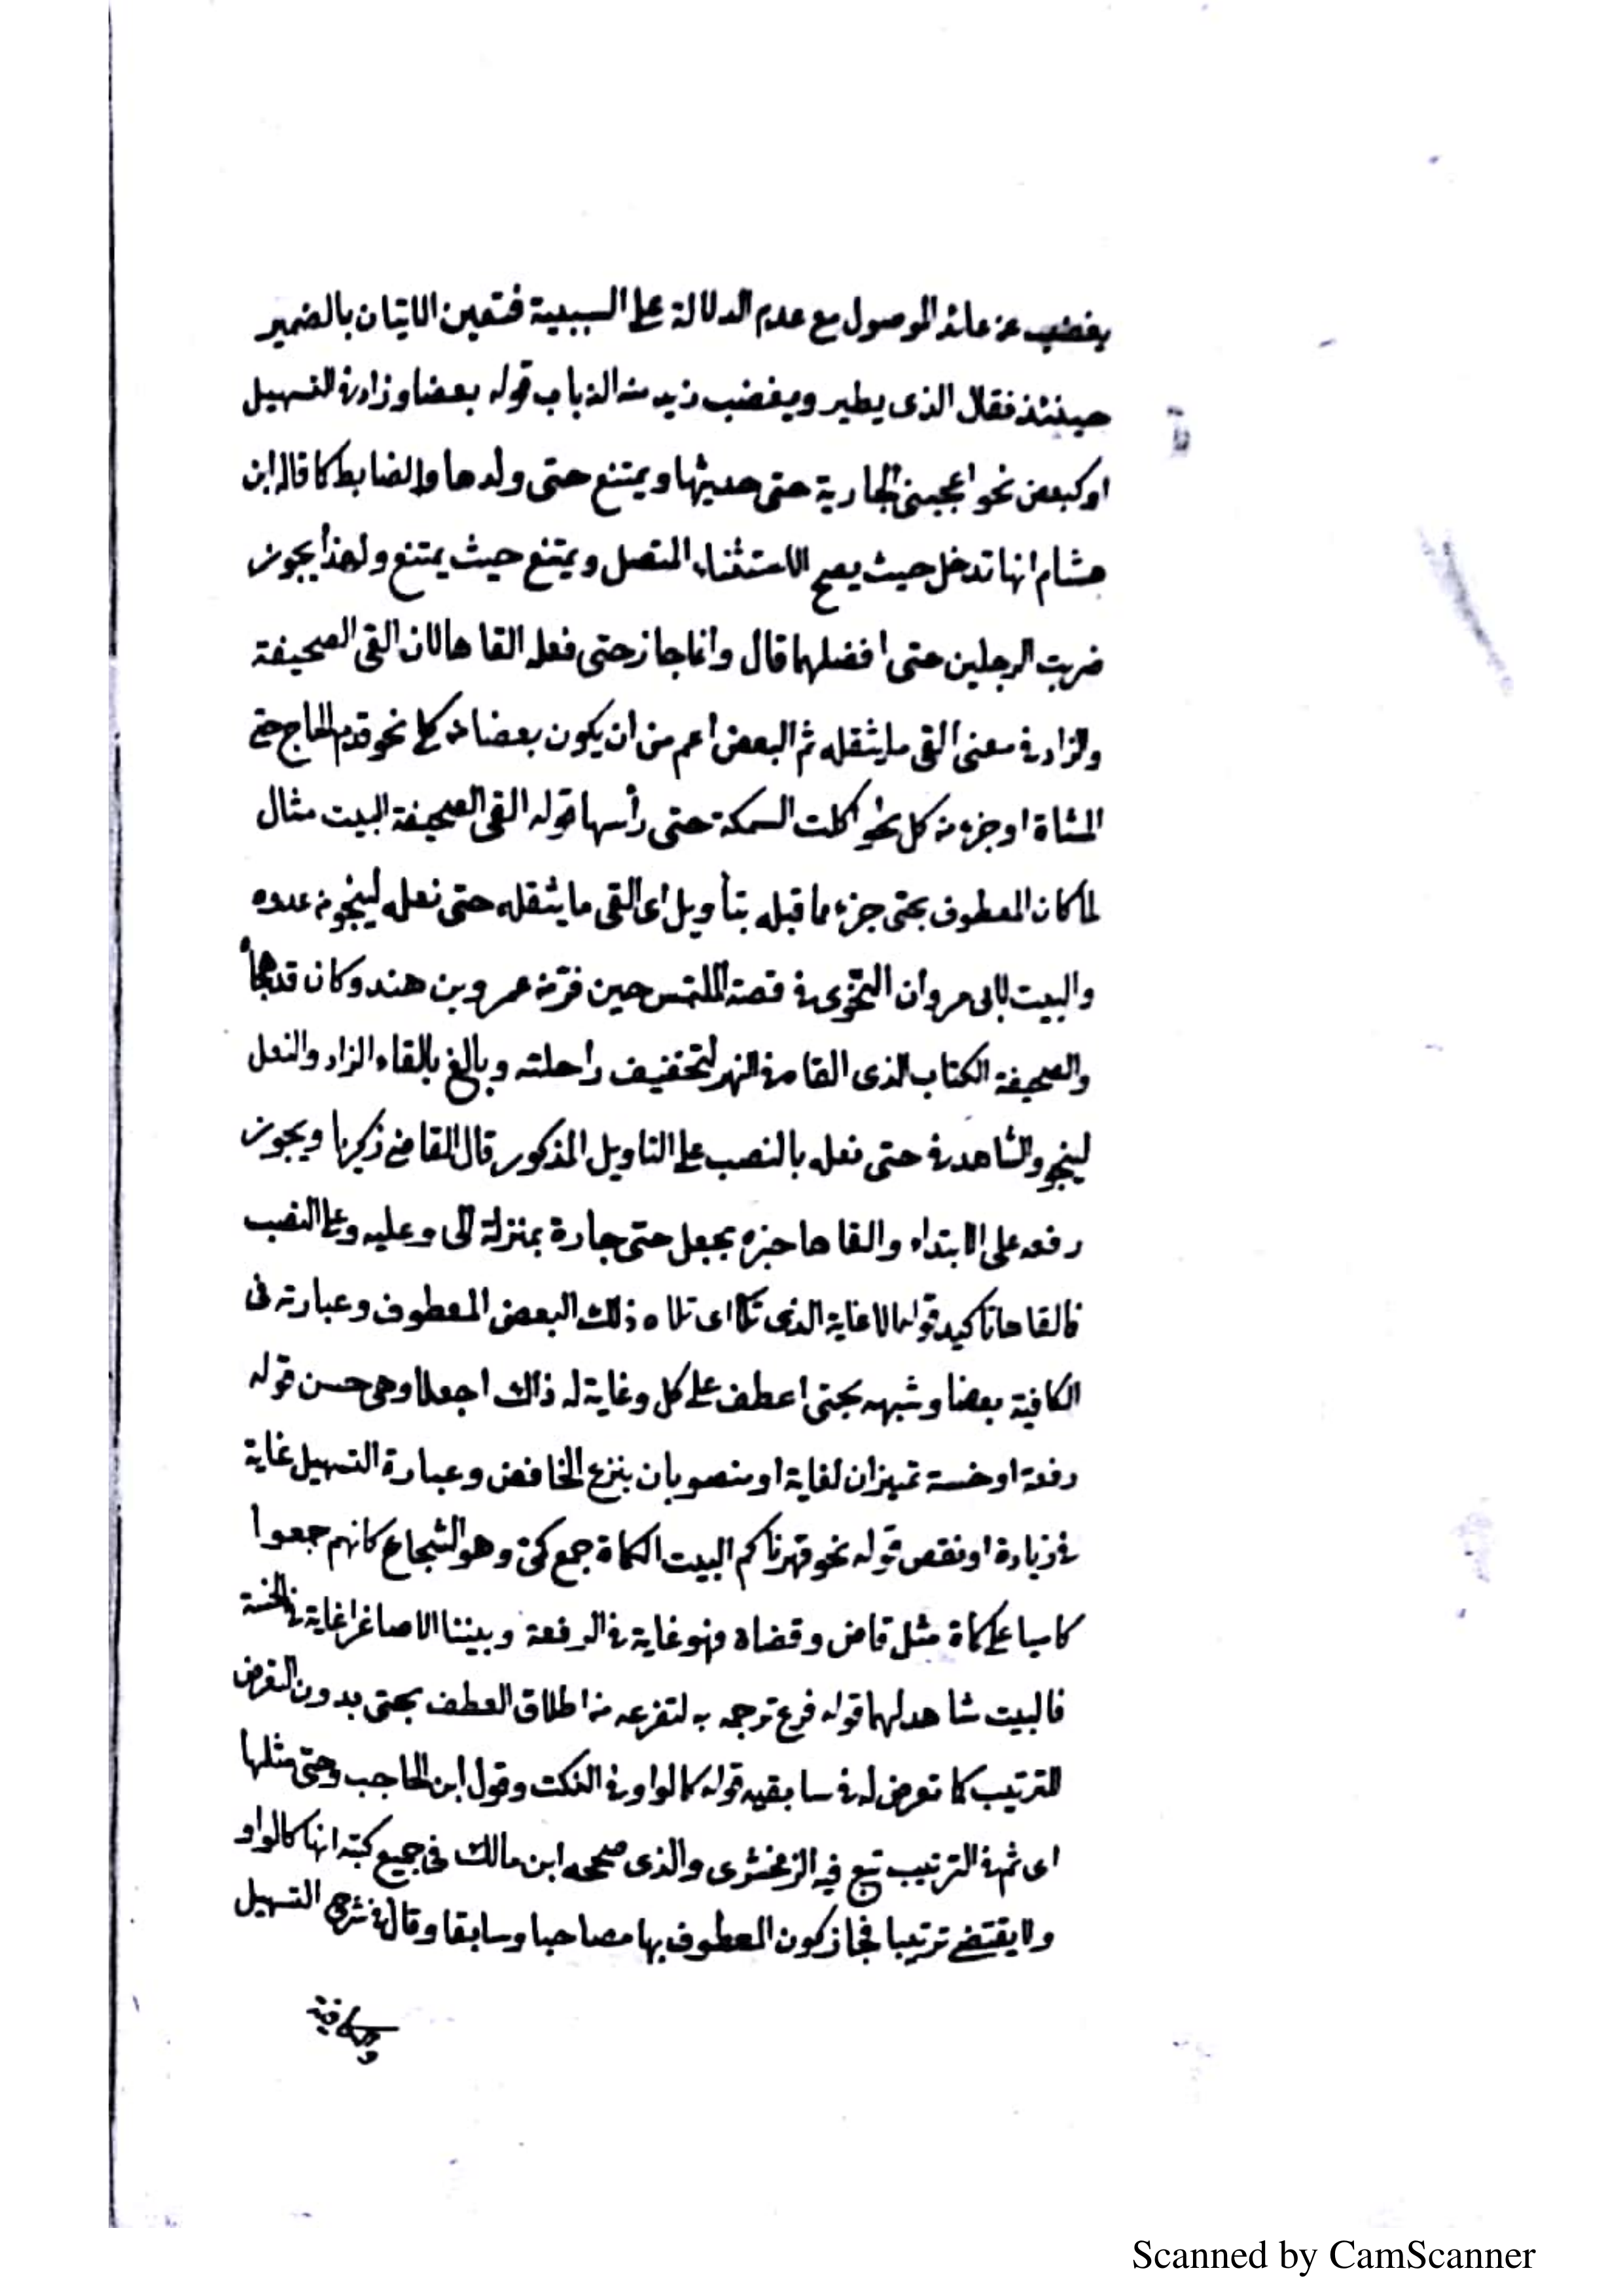 يغضب عن عائد الموصول مع عدم الدلالة على السببية فتعين الاتيان بالضمير
حينئذ فقال الذى يطير ويغضب زيد منه الذباب قوله بعضا وزاد في التسهيل
او كبعض نحو اعجبنى الجارية حتى حديثها ويمتنع حتى ولدها والضابط كما قاله ابن
هشام انها تدخل حيث يصح الاستثناء المتصل ويمتنع حيث يمتنع ولهذا يجوز
ضربت الرجلين حتى افضلهما قال وانما جاز حتى نعله القاها لان القى الصحيفة
والزاد في معنى القى ما يثقله ثم البعض اعم من ان يكون بعضا من كل نحو قدم الحاج حتى
المشاة او جزء من كل نحو اكلت السمكة حتى رأسها قوله القى الصحيفة البيت مثال
لما كان المعطوف بحتى جزء مما قبله بتأويل اى القى ما يثقله حتى نعله لينجو من عدوه
والبيت لابى مروان النحوى في قصة الملتمس حين فر من عمرو بن هند وكان قد هجاه
والصحيفة الكتاب الذى القاه في النهر لتخفيف راحلته وبالغ بالقاء الزاد والنعل
لينجو والشاهد في حتى نعله بالنصب على التاويل المذكور قال القاضى زكريا ويجوز
رفعه على الابتداء والقاها خبره بجعل حتى جارة بمنزلة الى وعليه وعلى النصب
فالقاها تاكيد قوله الا غاية الذى تلا اى تلاه ذلك البعض المعطوف وعبارته فى
الكافية بعضا وشبهه بحتى اعطف على كل وغاية له ذاك اجعلا وهى حسن قوله
رفعة او خسة تميزان لغاية او منصوبان بنزع الخافض وعبارة التسهيل غاية
في زيادة او نقص قوله نحو قهرناكم البيت الكماة جمع كمى وهو الشجاع كانهم جمعوا
كاميا على كماة مثل قاض وقضاة فهو غاية في الرفعة وبيننا الاصاغرا غاية في الخسة
فالبيت شاهد لهما قوله فرع ترجمه به لتفرعه من اطلاق العطف بحتى بدون التعرض
للترتيب كما تعرض له في سابقيه قوله كالواو في النكت وقول ابن الحاجب وحتى مثلها
اى ثم في الترتيب تبع فيه الزمخشرى والذى صححه ابن مالك فى جميع كتبه انها كالواو
ولا يقتضى ترتيبا فجاز كون المعطوف بها مصاحبا وسابقا وقال في شرح التسهيل
Scanned by CamScanner